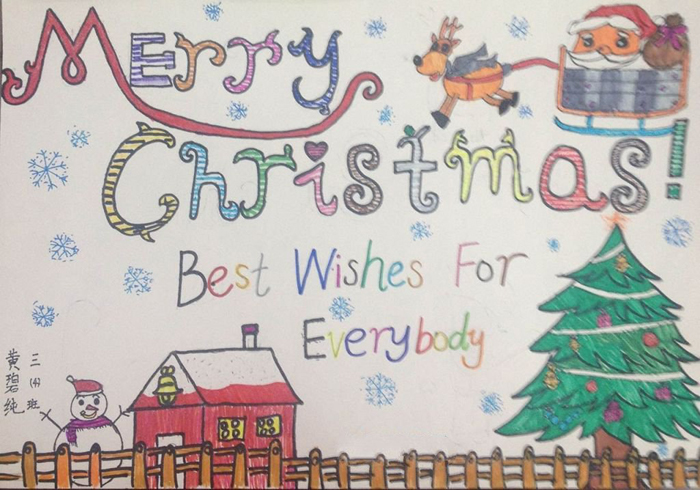 Merry
Christmas!
Best Wishes For
Everybody
三 班
黄碧纯